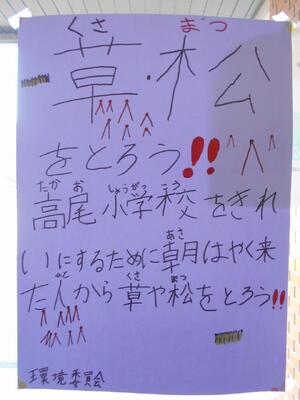 くさ まつ
草・松
をとろう!!
たか お しょうがっ こう
高尾小学校をきれ
あさ
いにするために朝はやく来
ひと くさ まつ
た人から草や松をとろう!!
環境委員会